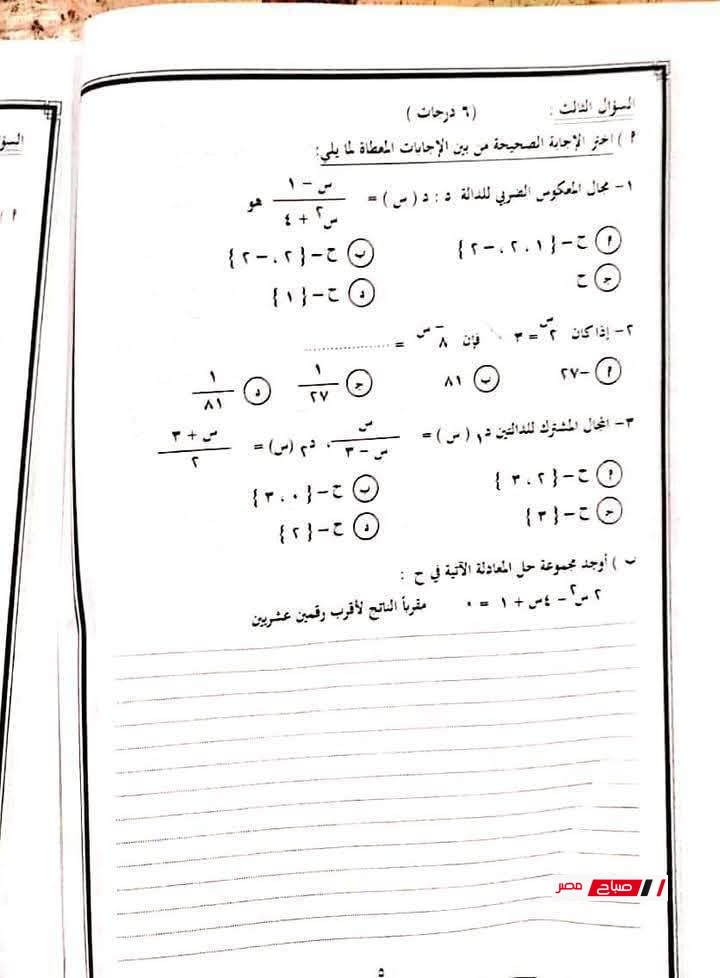 السؤال الثالث : (٦ درجات)
٢) اختر الإجابة الصحيحة من بين الإجابات المعطاة لما يلي:
١- مجال المعكوس الضربي للدالة د : د (س) = (س - ١)/(س² + ٤) هو
أ ح - {١ ، ٢ ، -٢} ب ح - {٢ ، -٢}
ج ح د ح - {١}
٢- إذا كان ٢^س = ٣ فإن ٨^-س = ..............
أ -٢٧ ب ٨١ ج ١/٢٧ د ١/٨١
٣- المجال المشترك للدالتين د١ (س) = س/(س - ٣) ، د٢ (س) = (س + ٣)/٢
أ ح - {٢ ، ٣} ب ح - {٠ ، ٣}
ج ح - {٣} د ح - {٢}
ب) أوجد مجموعة حل المعادلة الآتية في ح :
٢ س² - ٤س + ١ = ٠ مقرباً الناتج لأقرب رقمين عشريين
صباح مصر
٥